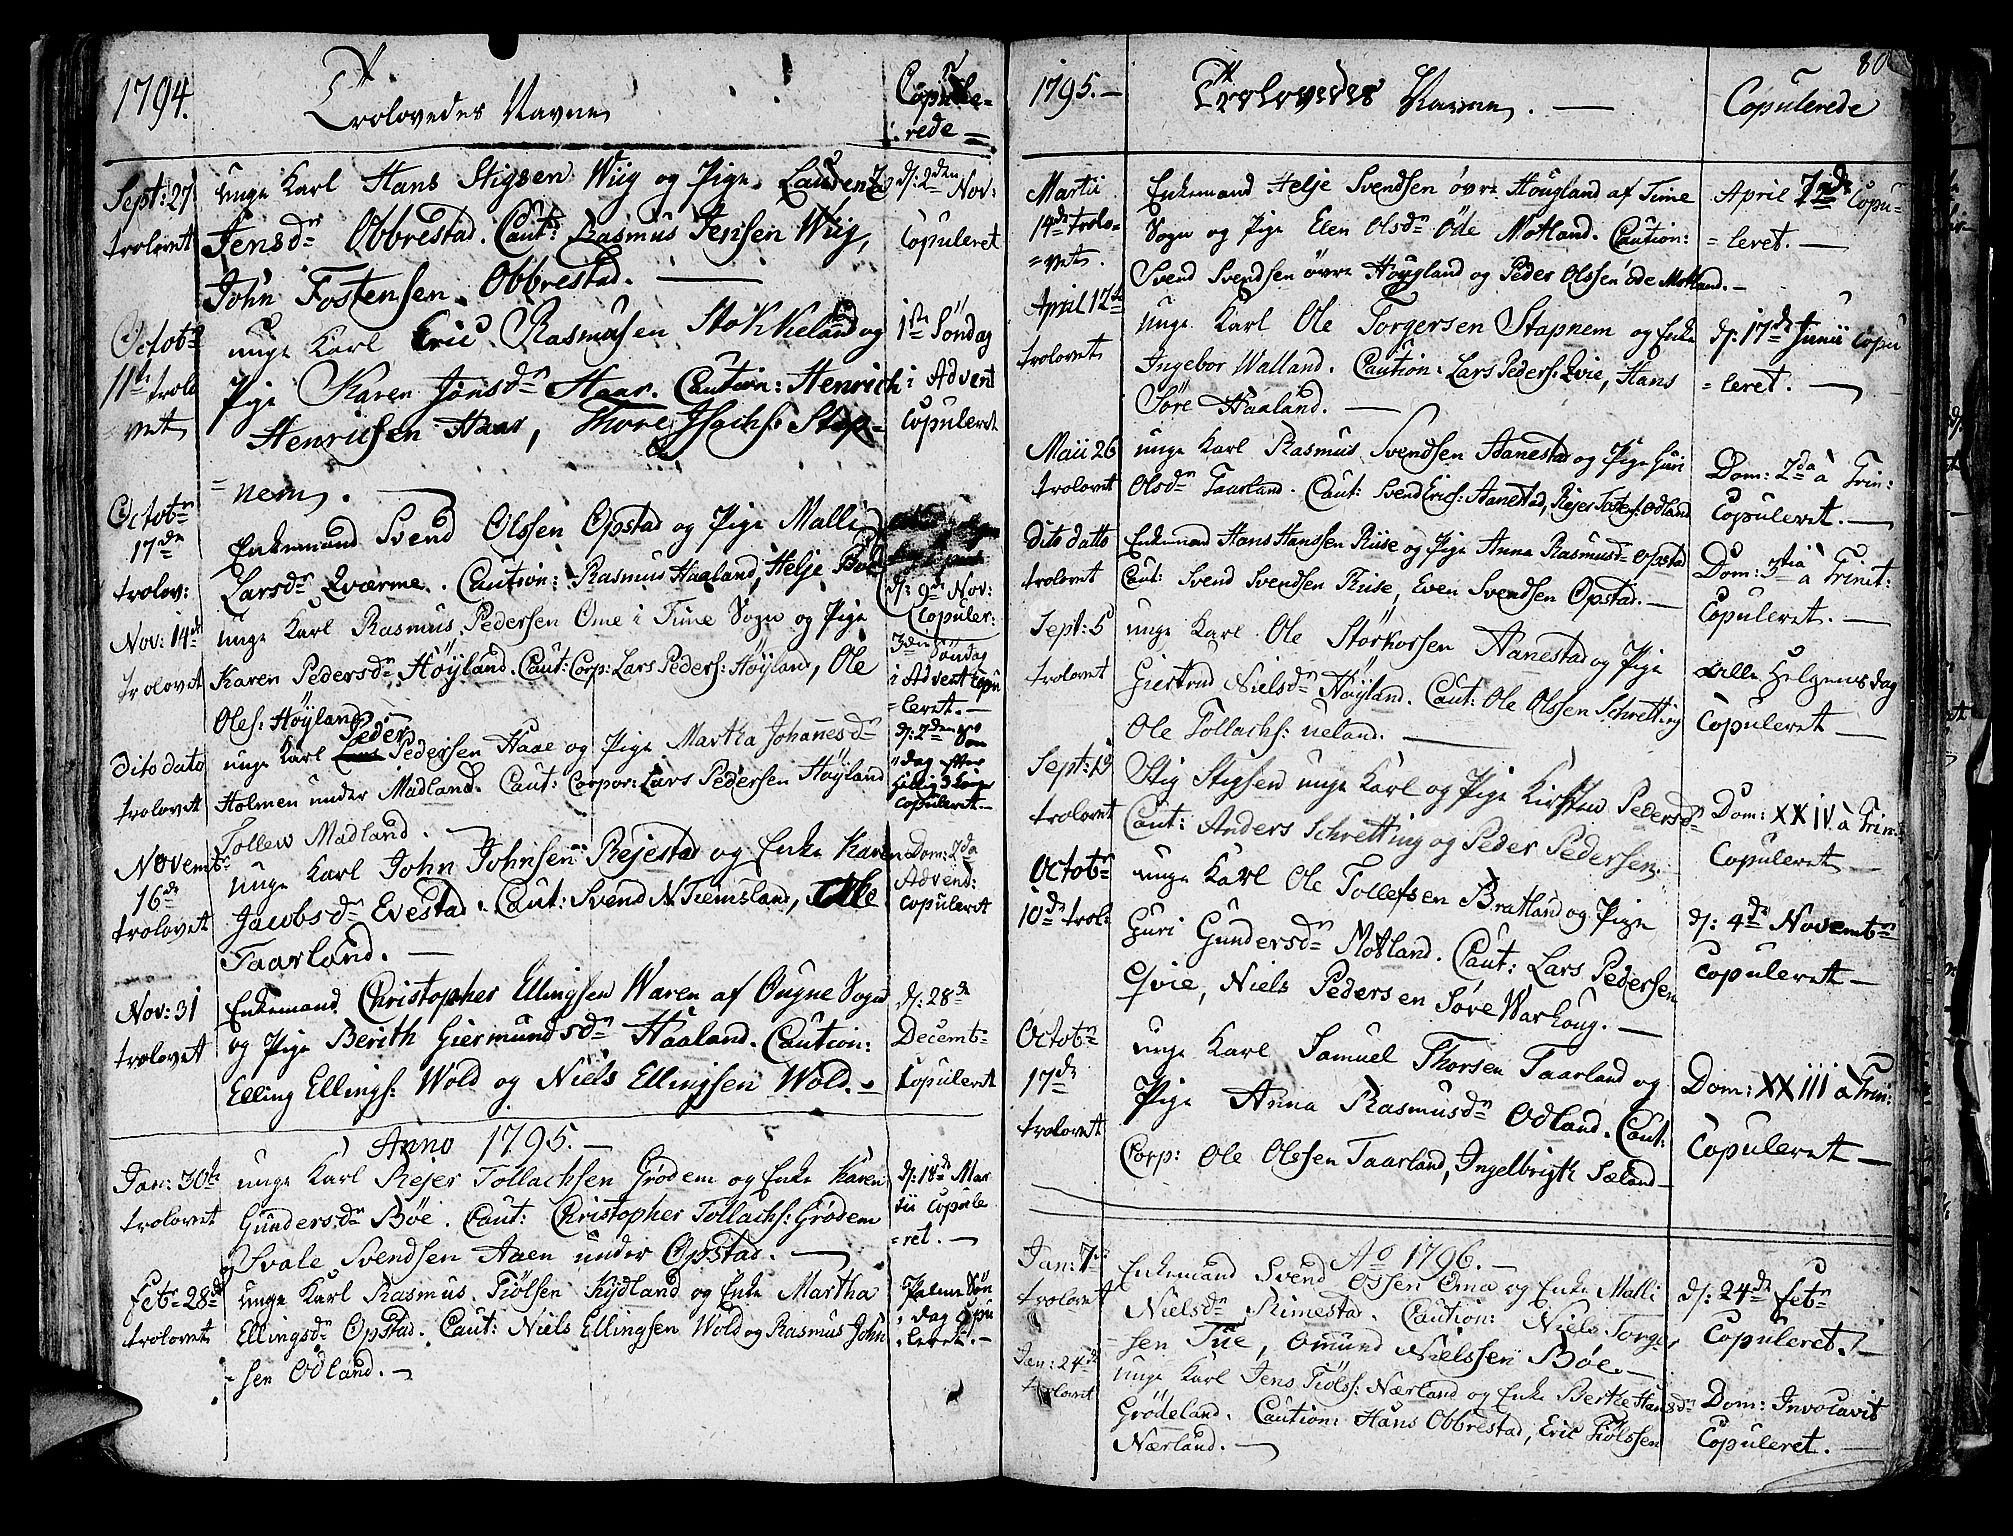 1794.
Trolovedes Navne
Copule-
rede
Sept: 27
trolovet
unge Karl Hans Stigsen Wiig og Pige Laurentze
Jensdr Obbrestad. Caut: Rasmus Jensen Wiig,
John Tostensen Obbrestad.
d: 2den Nov:
Copuleret
Octobr
11te trolo
vet
unge Karl Eric Rasmusen Stokkeland og
Pige Karen Jonsdr Haar. Caution: Henrich
Henricsen Haar, Thore Isachs: Stap-
= nem.
1ste Söndag
i Advent
Copuleret
Octobr
17de
trolov:
Enkemand Svend Olssen Opstad og Pige Malli
Larsdr Qværme. Caution: Rasmus Haaland, Helje Böe
d: 9de Nov:
Copuler:
Nov: 14de
trolovet
unge Karl Rasmus Pedersen Ome i Time Sogn og Pige
Karen Pedersdr Höyland. Caut: Corp: Lars Peders: Höyland, Ole
Oles: Höyland
3die Söndag
i Advent Copu
= leret. -
dito dato
trolovet
unge Karl Peder Pedersen Haae og Pige Martha Johannesdr
Holmen under Madland. Caut: Corpor: Lars Pedersen Höyland
Tollew Madland.
d: 2den Sön
dag efter
Hellig 3 Konger
Copuleret -
Novembr
16de
trolovet
unge Karl John Johnsen Rejestad og Enke Karen
Jacobsdr Evestad. Caut: Svend N. Tiemsland,
Taarland. -
Dom: 2da
Advend:
Copuleret
Nov: 31
trolovet
Enkemand Christopher Ellingsen Waren af Ougne Sogn
og Pige Berith Giermundsdr Haaland. Caution:
Elling Ellings: Wold og Niels Ellingsen Wold. -
d: 28de
Decembr
Copuleret
Anno 1795. -
Jan: 30te
trolovet
unge Karl Rejer Tollachsen Grödem og Enke Karen
Gundersdr Böe. Caut: Christopher Tollachs: Grödem
og Svale Svendsen Aaen under Opstad. -
d: 18de Mar
tii Copule
= ret. -
Febr 28de
trolovet
unge Karl Rasmus Tiölsen Kydland og Enke Martha
Ellingsdr Opstad. Caut: Niels Ellingsen Wold og Rasmus John
sen Odland. -
Palme Sön
dag Copu
leret. -
80
1795. -
Trolovedes Navne. -
Copulerede
Martii
14de trolo-
= vet.
Enkemand Helje Svendsen övre Hougland af Time
Sogn og Pige Elen Olsdr Öde Motland. Caution:
Svend Svendsen övre Hougland og Peder Olssen öde Motland. -
April 7de Copu-
= leret. -
April 12te
trolovet
unge Karl Ole Torgersen Stapnem og Enke
Ingebor Walland. Caution: Lars Peders: Qvie, Hans
Söre Haaland. -
d: 17de Junii Copu
= leret. -
Maii 26
trolovet
unge Karl Rasmus Svendsen Aanestad og Pige Guri
Olsdr Taarland. Caut: Svend Erics: Aanestad, Rejer Tostens: Odland
Dom: 2da à Trin:
Copuleret. -
dito datto
trolovet
Enkemand Hans Hanssen Riise og Pige Anna Rasmusdr Opstad
Caut: Svend Svendsen Riise, Even Svendsen Opstad. -
Dom: 3tia à Trinit:
Copuleret. -
Sept: 5
trolovet
unge Karl Ole Störkorsen Aanestad og Pige
Giertrud Nielsdr Höyland. Caut: Ole Olssen Schretting
Ole Tollachs: Ueland. -
Alle Helgens dag
Copuleret -
Sept: 19
trolovet
Stig Stigsen unge Karl og Pige Kirsten Pedersdr
Caut: Anders Schretting og Peder Pedersen. -
Dom: XXIV à Trin:
Copuleret -
Octobr
10de trolo
unge Karl Ole Tollefsen Bratland og Pige
Guri Gundersdr Motland. Caut: Lars Pedersen
Qvie, Niels Pedersen Söre Warhoug. -
d: 4de Novembr
Copuleret -
Octobr
17de
trolovet
unge Karl Samuel Thorsen Taarland og
Pige Anna Rasmusdr Odland. Caut:
Corp: Ole Olssen Taarland, Ingelbrigt Sæland -
Dom: XXIII à Trin:
Copuleret -
Ao 1796. -
Jan: 7de
trolovet
Enkemand Svend Olssen Oma og Enke Malli
Nielsdr Rimestad. Caution: Niels Torger
sen Tue, Omund Nielssen Böe. -
d: 24de Febr
Copuleret. -
Jan: 24de
trolovet
unge Karl Jens Tiölss: Nærland og Enke Berthe Hansdr
Grödeland. Caution: Hans Obbrestad, Eric Tiölssen
Nærland. -
Dom: Invocavit
Copuleret. -